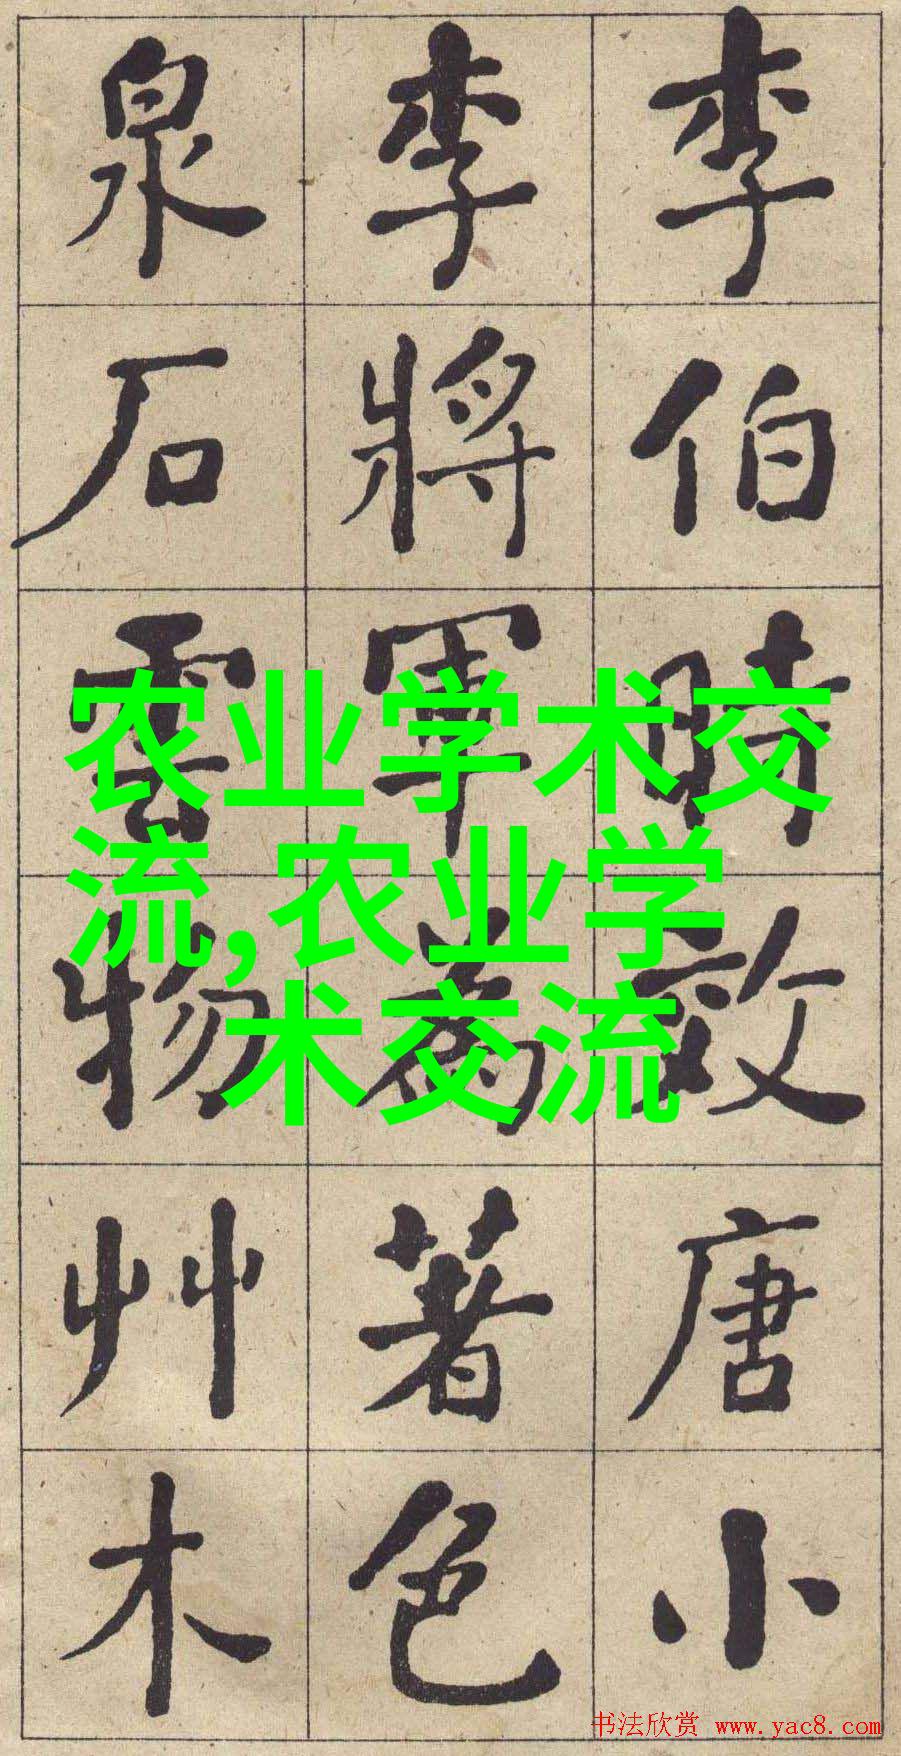 李伯時效唐小
李將軍為著色
泉石雲物艸木
农业学术交
流,农业学
术交流
书法欣赏 www.yac8.com